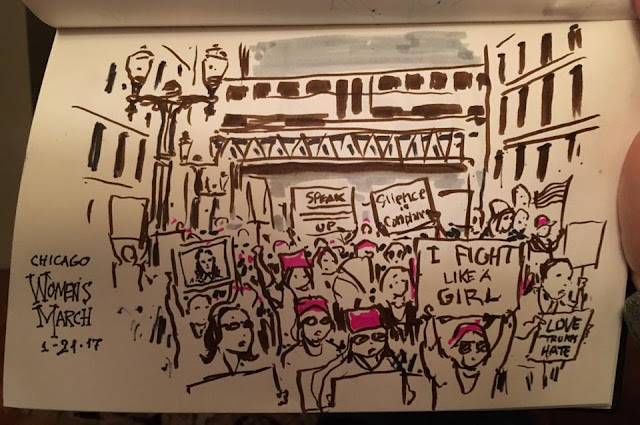 SPEAK
UP
Silence
is
I FIGHT
LIKE A
GIRL
CHICAGO
WOMEN'S
MARCH
1-21-17
LOVE
TRUMPS
HATE